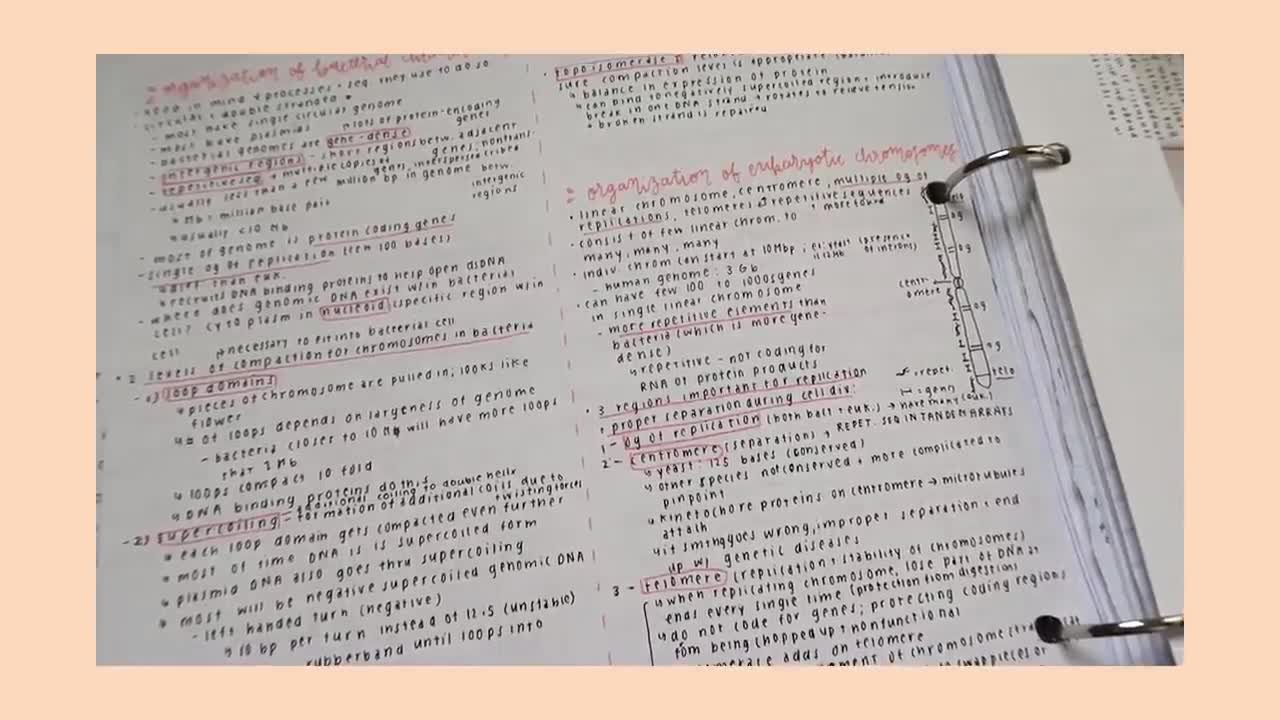 organization of bacterial
keep in mind + processes + seq. they use to do so
circular + double stranded
- most have single circular genome
- most have plasmids
- bacterial genomes are gene-dense
→ lots of protein-encoding genes
- intergenic regions - short regions betw. adjacent genes, nontranscribed
- repetitive seq → multiple copies of genes, interspersed betw. intergenic regions
- usually less than a few million bp in genome
↳ Mb = million base pair
↳ usually < 10 Mb
- most of genome is protein coding genes
- single og of replication (few 100 bases)
↳ recruits DNA binding proteins to help open dsDNA
- where does genomic DNA exist w/in bacterial
cell? cytoplasm in nucleoid (specific region w/in
cell
↱ necessary to fit into bacterial cell
• 2 levels of compaction for chromosomes in bacteria
- 1) loop domains
↳ pieces of chromosome are pulled in; looks like
flower
↳ # of loops depends on largeness of genome
- bacteria closer to 10 Mb will have more loops
that 2 Mb
↳ loops compact 10 fold
↳ DNA binding proteins do this
additional coiling to double helix
- 2) supercoiling - formation of additional coils due to twisting forces
↳ each loop domain gets compacted even further
↳ most of time DNA is is supercoiled form
↳ plasmid DNA also goes thru supercoiling
↳ most will be negative supercoiled genomic DNA
- left handed turn (negative)
↳ 10 bp per turn instead of 12.5 (unstable)
rubberband until loops into
topoisomerase
sure compaction level is appropriate
↳ balance in expression of protein
↳ can bind to negatively supercoiled region + introduce
break in one DNA strand + rotates to relieve tension
↳ broken strand is repaired
= organization of eukaryotic chromosomes
• linear chromosome, centromere, multiple og of
replications, telomeres → repetitive sequences
• consist of few linear chrom. to
many, many, many
• indiv. chrom can start at 10 Mbp
- human genome: 3 Gb
• can have few 100 to 1000s genes
in single linear chromosome
- more repetitive elements than
bacteria (which is more gene-
dense)
↳ repetitive - not coding for
RNA or protein products
• 3 regions important for replication
+ proper separation during cell div:
1 - og of replication (both bact + euk.) → have many (euk.)
2 - centromere (separation) → REPET. SEQ IN TANDEM ARRAYS
↳ yeast: 125 bases (conserved)
↳ other species not conserved + more complicated to
pinpoint
↳ kinetochore proteins on centromere → microtubules
attach
↳ if smthg goes wrong, improper separation + end
up w/ genetic diseases
3 - telomere (replication + stability of chromosomes)
↳ when replicating chromosome, lose part of DNA at
ends every single time (protection from digestion)
↳ do not code for genes; protecting coding regions
from being chopped up + nonfunctional
adds on telomere
of chromosome
swap pieces of
telo
og
og
centr-
omere
og
og
telo
= repet.
= gene